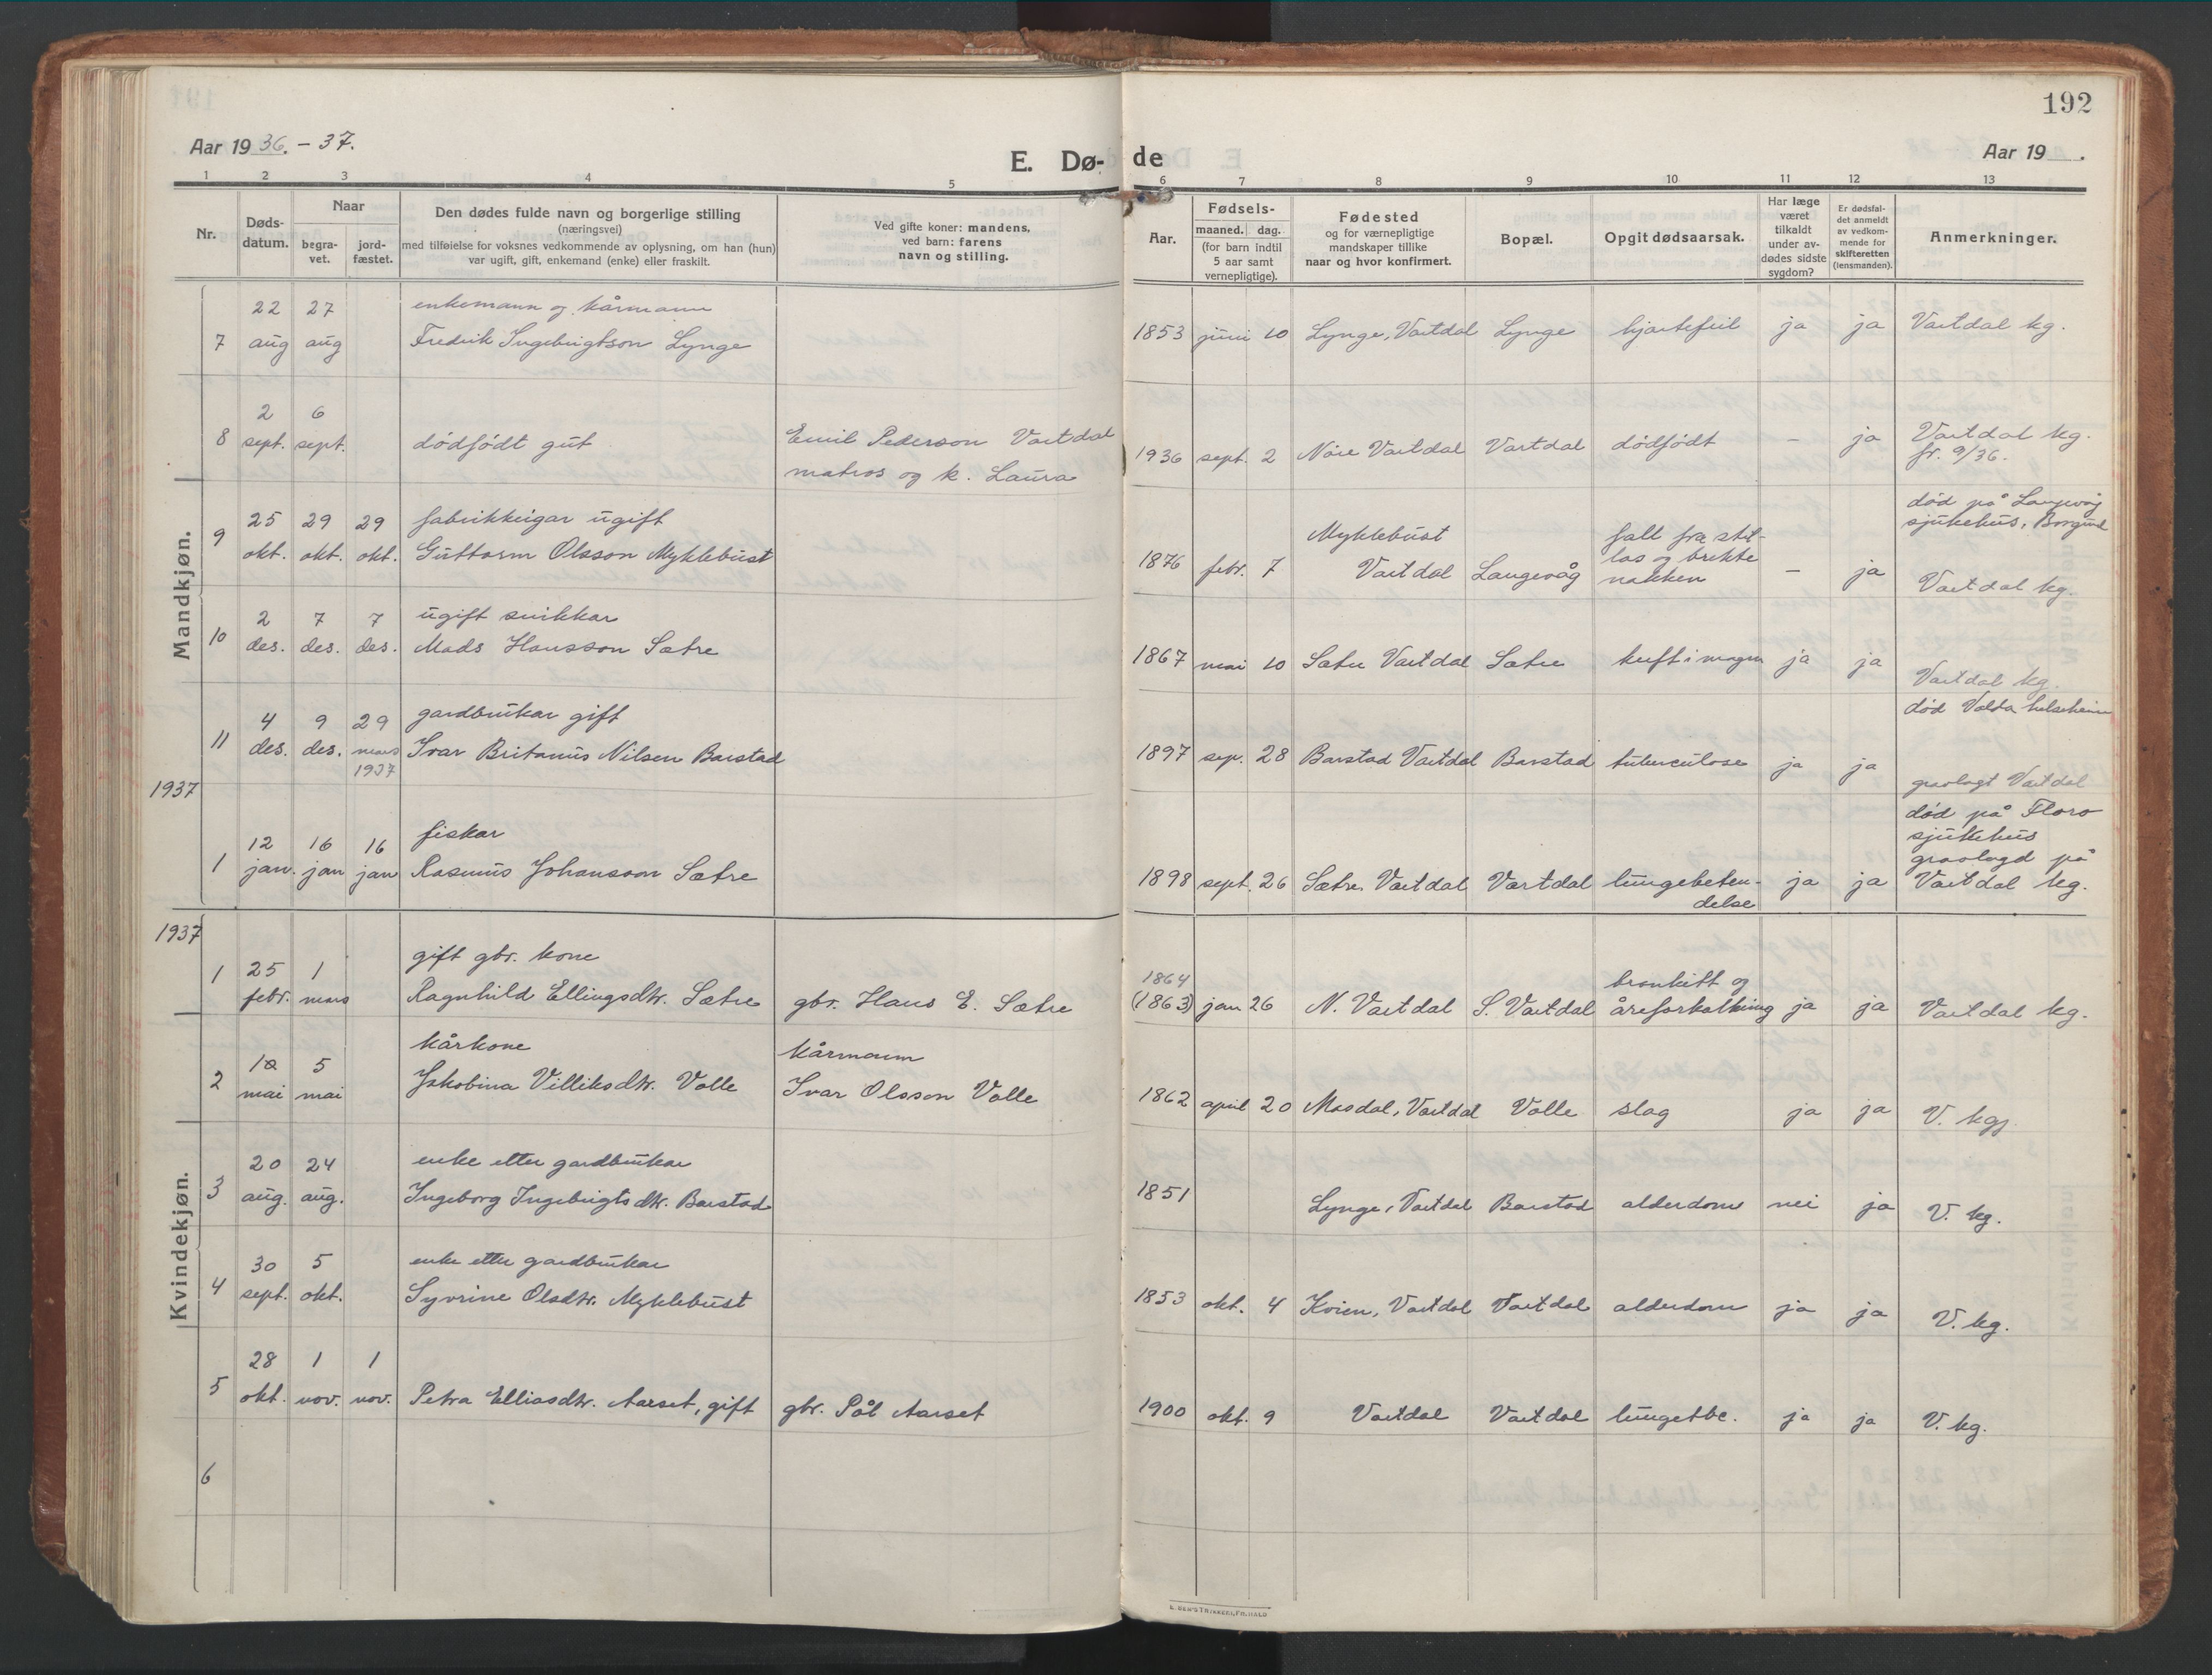 192
Aar 1936. – 37.
E. Dø- de
Aar 19   .
1 2 3 4 5 6 7 8 9 10 11 12 13
Nr.
Døds-
datum.
Naar
begra-
vet.
jord-
fæstet.
Den dødes fulde navn og borgerlige stilling
(næringsvei)
med tilføielse for voksnes vedkommende av oplysning, om han (hun)
var ugift, gift, enkemand (enke) eller fraskilt.
Ved gifte koner: mandens,
ved barn: farens
navn og stilling.
Aar.
Fødsels-
maaned. dag.
(for barn indtil
5 aar samt
vernepligtige).
Fødested
og for værnepligtige
mandskaper tillike
naar og hvor konfirmert.
Bopæl.
Opgit dødsaarsak.
Har læge
været
tilkaldt
under av-
dødes sidste
sygdom?
Er dødsfal-
det anmeldt
av vedkom-
mende for
skifteretten
(lensmanden).
Anmerkninger.
Mandkjøn.
22 27 enkemann og kårmann
7 aug aug Fredrik Ingebrigtson Lynge 1853 juni 10 Lynge, Vartdal Lynge hjartefeil ja ja Vartdal kg.
2 6
8 sept. sept. dødfødt gut Emil Pederson Vartdal
matros og k. Laura
1936 sept. 2 Nøre Vartdal Vartdal dødfødt – ja Vartdal kg.
fr. 9/36.
25 29 29 fabrikkeigar ugift
9 okt. okt. okt. Guttorm Olsson Myklebust
1876 febr. 7 Myklebust
Vartdal Langevåg
falt fra stil-
las og brekte
nakken – ja
død på Langevåg
sjukehus, Borgund
Vartdal kg.
2 7 7 ugift snikkar
10 des. des. des. Mads Hansson Sætre 1867 mai 10 Sætre Vartdal Sætre kreft i magen ja ja Vartdal kg.
4 9 29 gardbrukar gift
11 des. des. mars Ivar Britanus Nilsen Barstad
1937
1897 sep. 28 Barstad Vartdal Barstad tuberculose ja ja
død Volda helseheim
gravlagt Vartdal
1937
12 16 16 fiskar
1 jan. jan jan Rasmus Johansson Sætre
1898 sept. 26 Sætre. Vartdal Vartdal lungebeten-
delse ja ja
død på Florø
sjukehus
gravlagd på
Vartdal kg.
Kvindekjøn.
1937
1 25 1 gift gbr. kone
febr. mars Ragnhild Ellingsdtr. Sætre gbr. Hans E. Sætre
1864
(1863) jan 26 N. Vartdal S. Vartdal
bronkitt og
åreforkalkning ja ja Vartdal kg.
10 5 kårkone kårmann
2 mai mai Jakobina Villiksdtr. Valle Ivar Olsson Valle
1862 april 20 Masdal, Vartdal Valle slag ja ja V. kg.
20 24 enke etter gardbrukar
3 aug. aug. Ingeborg Ingebrigtsdtr. Barstad
1851 Lynge, Vartdal Barstad alderdom nei ja V. kg.
30 5 enke etter gardbrukar
4 sept. okt. Syvrine Olsdtr. Myklebust
1853 okt. 4 Kvien, Vartdal Vartdal alderdom ja ja V. kg.
28 1 1
5 okt. nov. nov. Petra Elliasdtr. Aarset, gift gbr. Pål Aarset
1900 okt. 9 Vartdal Vartdal lungetbc. ja ja V. kg.
6